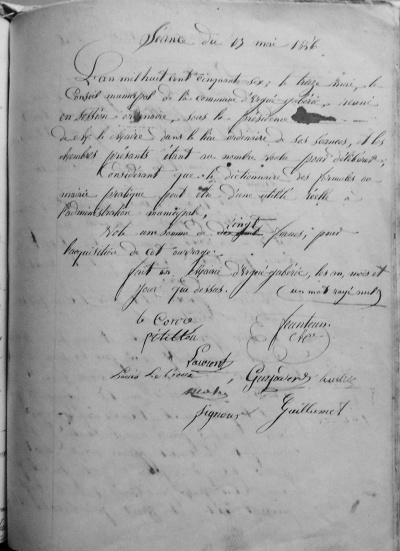 Séance du 13 mai 1856.
L'an mil huit cent cinquante six, le treize mai, le
Conseil municipal de la commune d'Ergué-gabéric, réuni
en session ordinaire, sous la présidence
de Mr le Maire dans le lieu ordinaire de ses séances, et les
membres présents étant au nombre voulu pour délibérer,
Considérant que le dictionnaire des formules ou
mairie pratique peut être d'une utilité réelle à
l'administration municipale,
vingt
Vote une somme de francs, pour
l'acquisition de cet ouvrage.
fait en Mairie d'Ergué-gabéric, les an, mois et
jour que dessus. (un mot rayé nul)
le Corre
Pétillon
Laurent
Guillamet